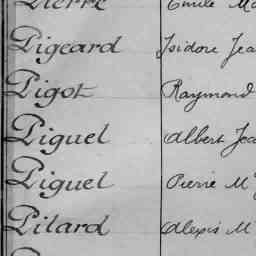 Pierre Emile
Pigeard Isidore
Pigot Raymond
Piguel Albert
Piguel Pierre M
Pilard Alexis M